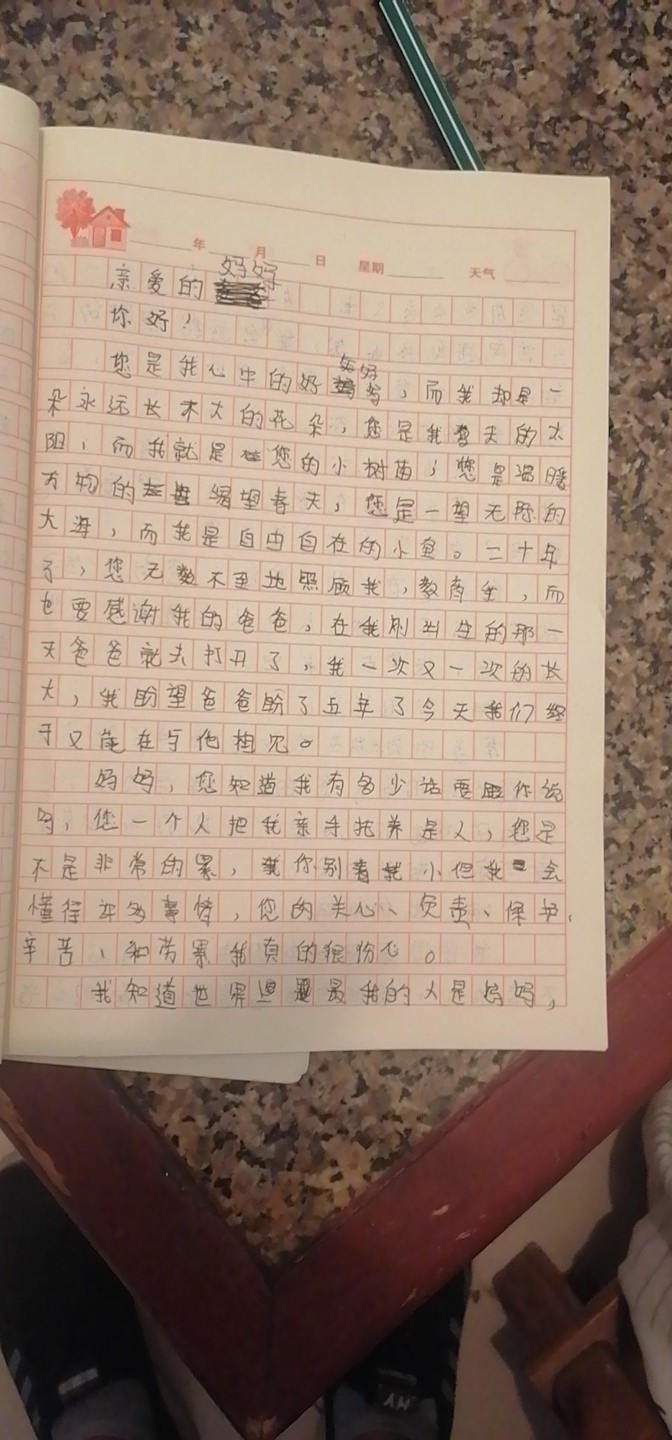 年 月 日 星期 天气
亲爱的妈妈
你好！
您是我心中的好妈妈，而我却是一
朵永远长不大的花朵，您是我春天的太
阳，而我就是您的小树苗；您是温暖
万物的 渴望春天，您是一望无际的
大海，而我是自由自在的小鱼。二十年
了，您无 不至地照顾我，教育 ，而
也要感谢我的爸爸，在我刚出生的那一
天爸爸就去打开了，我一次又一次的长
大，我盼望爸爸盼了五年了今天我们终
于又能在与他相见。
妈妈，您知道我有多少话要跟你说
吗，您一个人把我亲手抚养 人，您是
不是非常的累，你别看我小但我 会
懂得许多事情，您的关心、负责、保护、
辛苦、和劳累我真的很份心。
我知道世界 最我的人是妈妈，